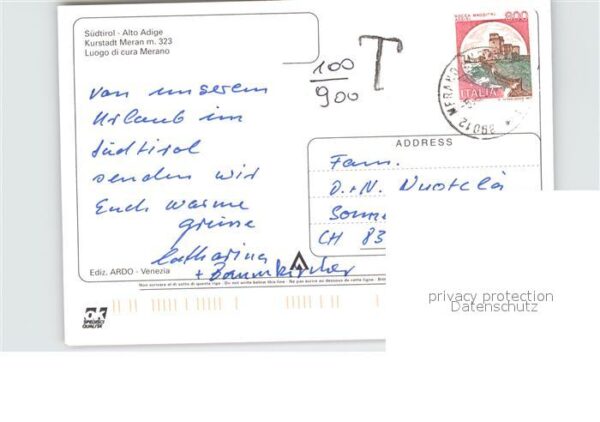 Südtirol - Alto Adige
Kurstadt Meran m. 323
Luogo di cura Merano
100
900
T
ROCCA MAGGIORE
800
ITALIA
39012 MERANO
von unserem
Urlaub im
Südtirol
senden wir
Euch warme
grüsse
Katharina
+
ADDRESS
Fam.
D.+N.
CH 83
Ediz. ARDO - Venezia
Non scrivere al di sotto di questa riga - Do not write below this line - Ne pas écrire au dessous de cette ligne -
ok
SPECIALE
QUALITÄT
privacy protection
Datenschutz